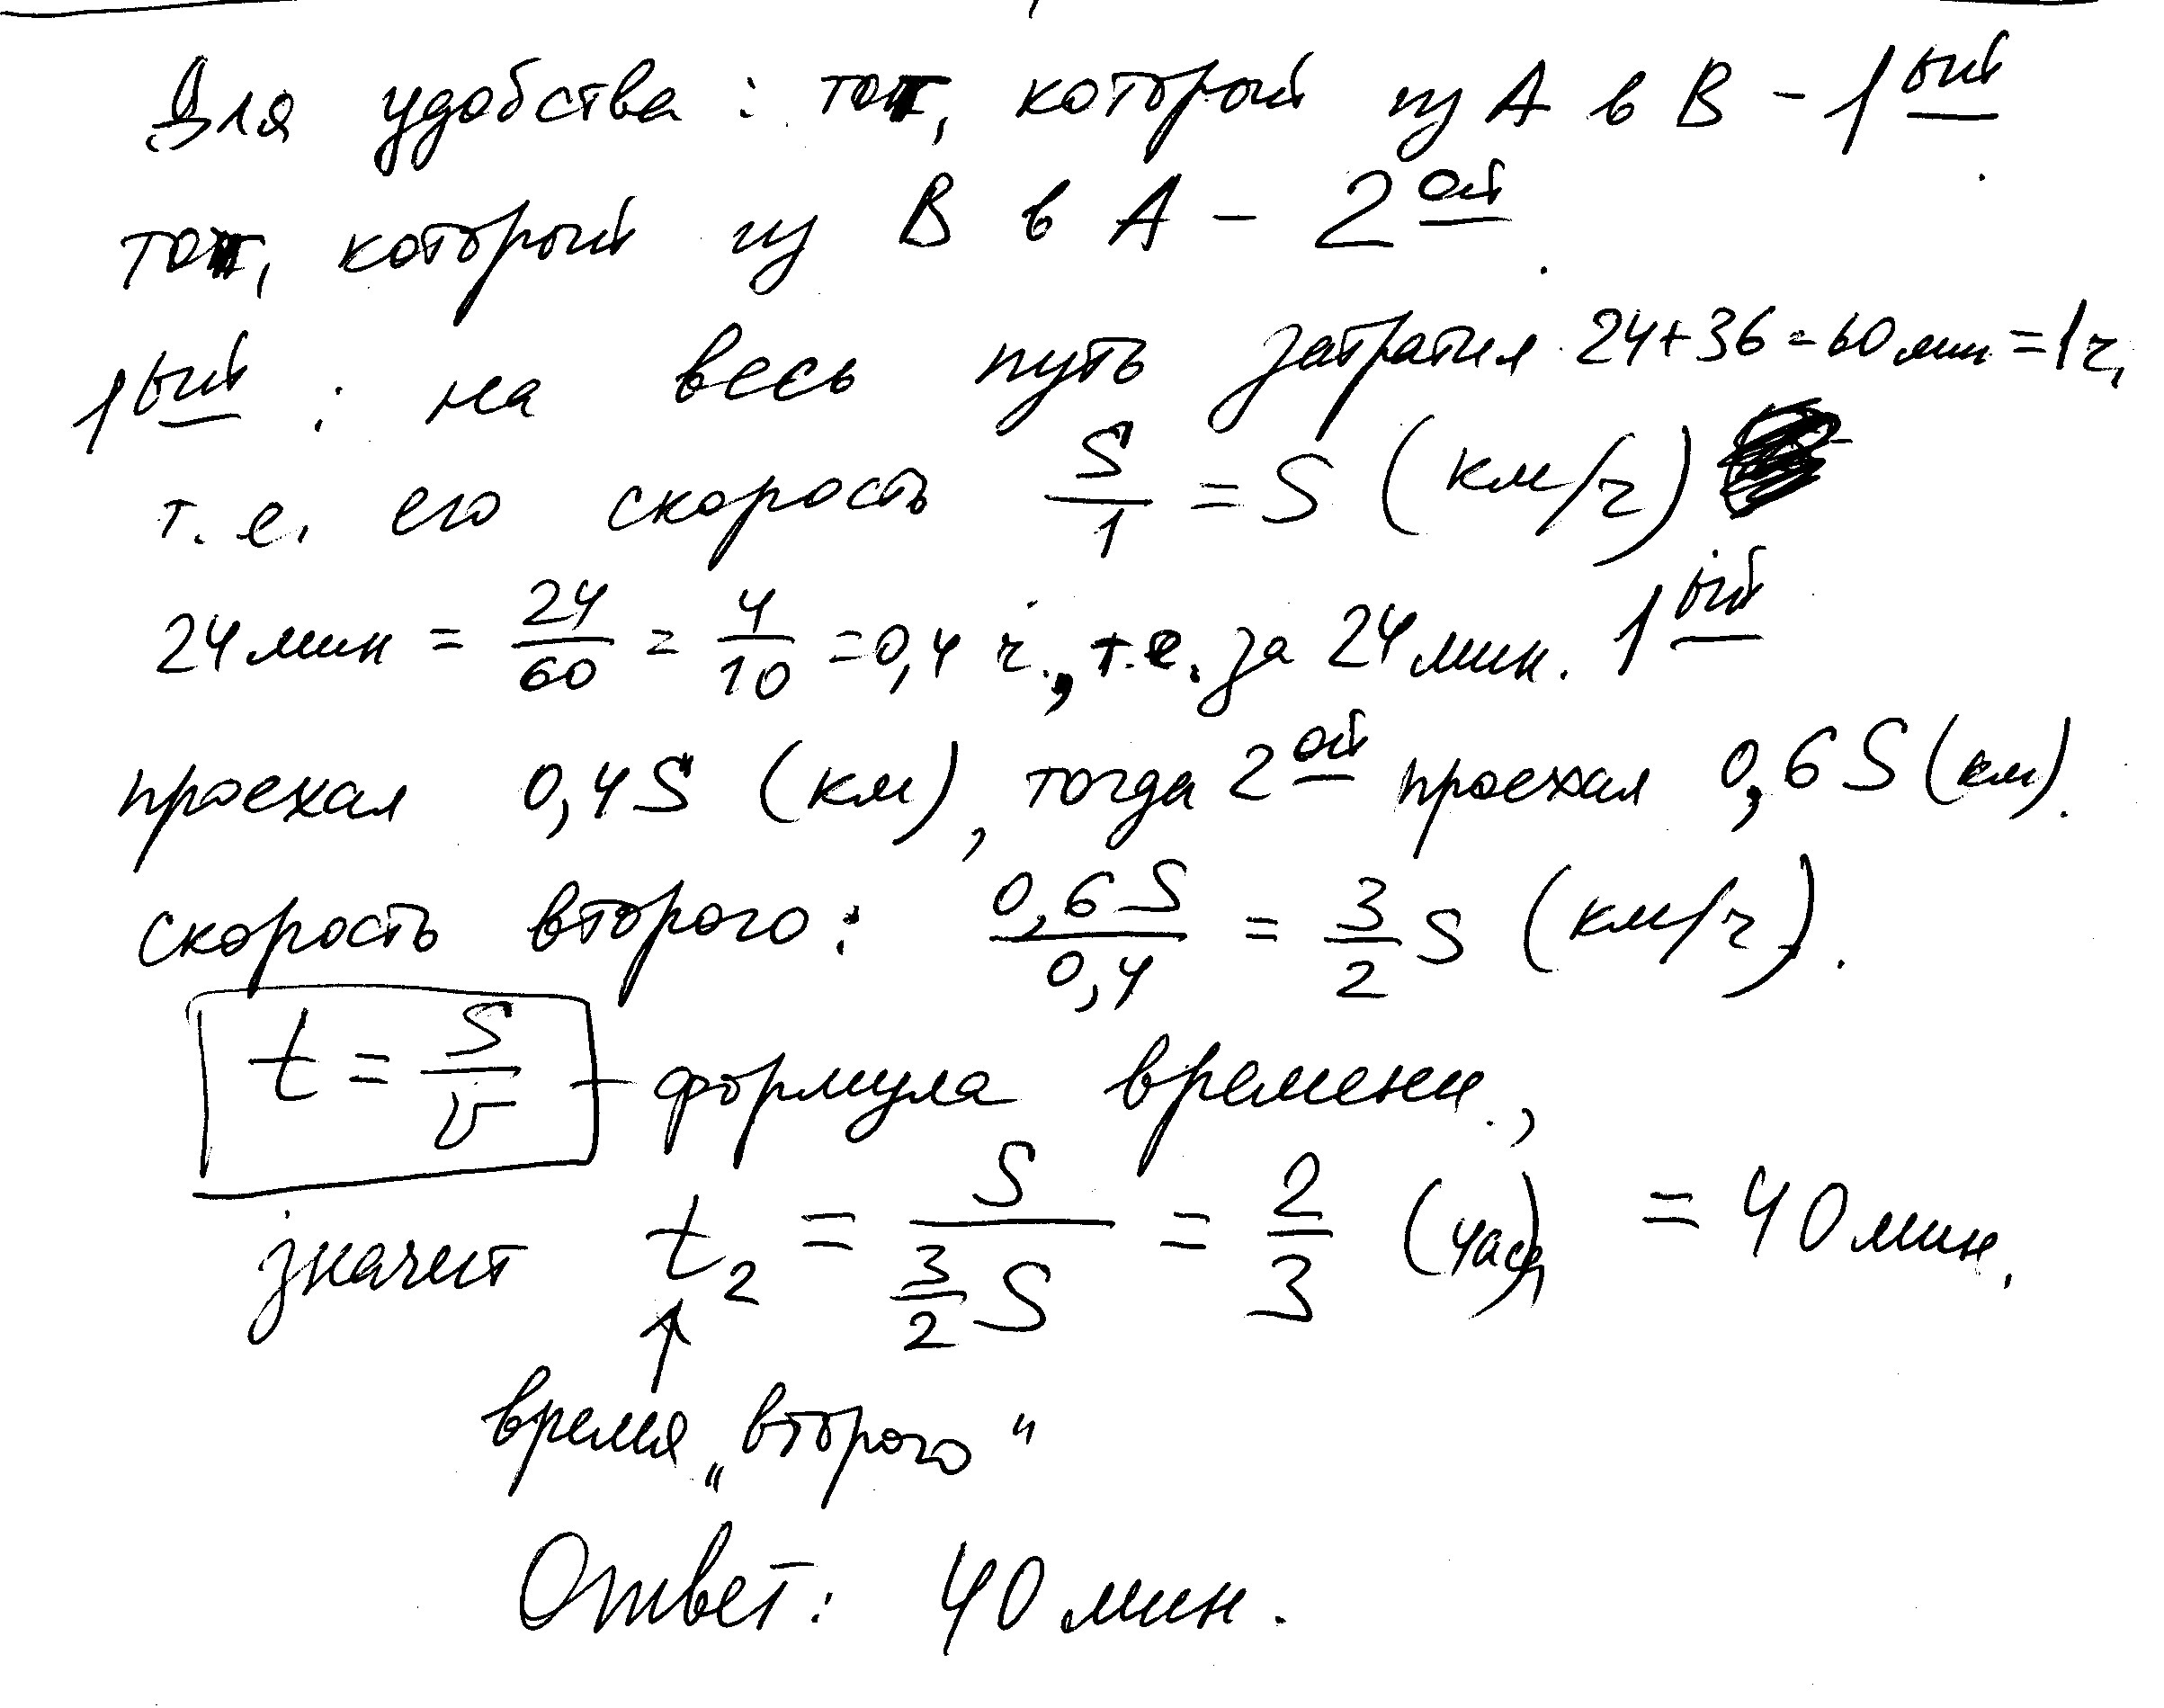 Для удобства: тот, который из А в В - 1ый.
тот, который из В в А - 2ой.
1ый: на весь путь затратил 24+36=60 мин = 1 ч,
т.е. его скорость S/1 = S (км/ч)
24 мин = 24/60 = 4/10 = 0,4 ч., т.е. за 24 мин. 1ый
проехал 0,4 S (км), тогда 2ой проехал 0,6 S (км).
скорость второго: 0,6 S/0,4 = 3/2 S (км/ч).
t = S/v - формула времени,
значит t₂ = S/(3/2 S) = 2/3 (часа) = 40 мин.
↑
время „второго“
Ответ: 40 мин.